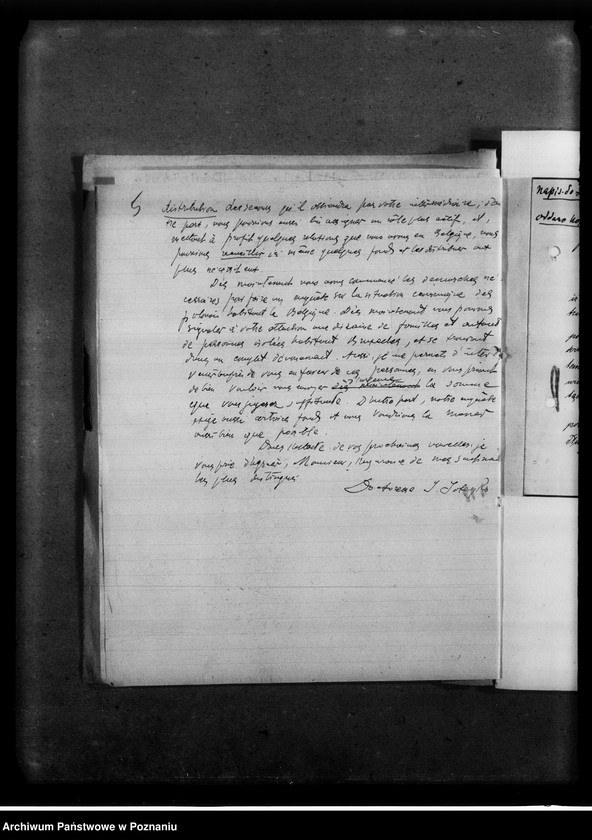 5
distribution des secours qu'il obtiendra par votre intermédiaire; d'au
tre part, nous pourrions aussi lui assigner un rôle plus actif, et,
mettant à profit quelques relations que nous avons en Belgique, nous
pourrions recueillir ici même quelques fonds et les distribuer aux
plus nécessiteux.
Dès maintenant nous avons commencé les démarches né
cessaires pour faire une enquête sur la situation économique des
polonais habitant la Belgique. Dès maintenant nous pouvons
signaler à votre attention une dizaine de familles et autant
de personnes isolées habitant Bruxelles, et se trouvant
dans un complet dénuement. Aussi, je me permets d'inter
venir auprès de vous en faveur de ces personnes, en vous priant
de bien vouloir nous envoyer d'urgence dès maintenant la somme
que vous jugerez suffisante. D'autre part, notre enquête
exige aussi certains fonds et nous voudrions la mener
aussi bien que possible.
Dans l'attente de vos prochaines nouvelles, je
vous prie d'agréer, Monsieur, l'assurance de mes sentiments
les plus distingués
Docteur J. Joteyko
napis. do
Archiwum Państwowe w Poznaniu